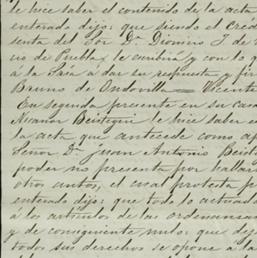 le hice saber el contenido de la acta
enterado dijo: que siendo el créd
senta del Sor Dn. Dionisio J de
no de Puebla, le cumbria y con lo q
a la Sala a dar su respuesta y fir
Bruno de Ondovilla = Vicente
En segunda presente en su casa
Nicanor Beistegui le hice saber
la acta que antecede como ap
Señor Dn. Juan Antonio Beist
poder no presenta por hallar
otros autos, el cual protesta p
enterado dijo: que todo lo actuado
a los artículos de las ordenanzas
y de consiguiente nulo: que dej
todos sus derechos se opone a la